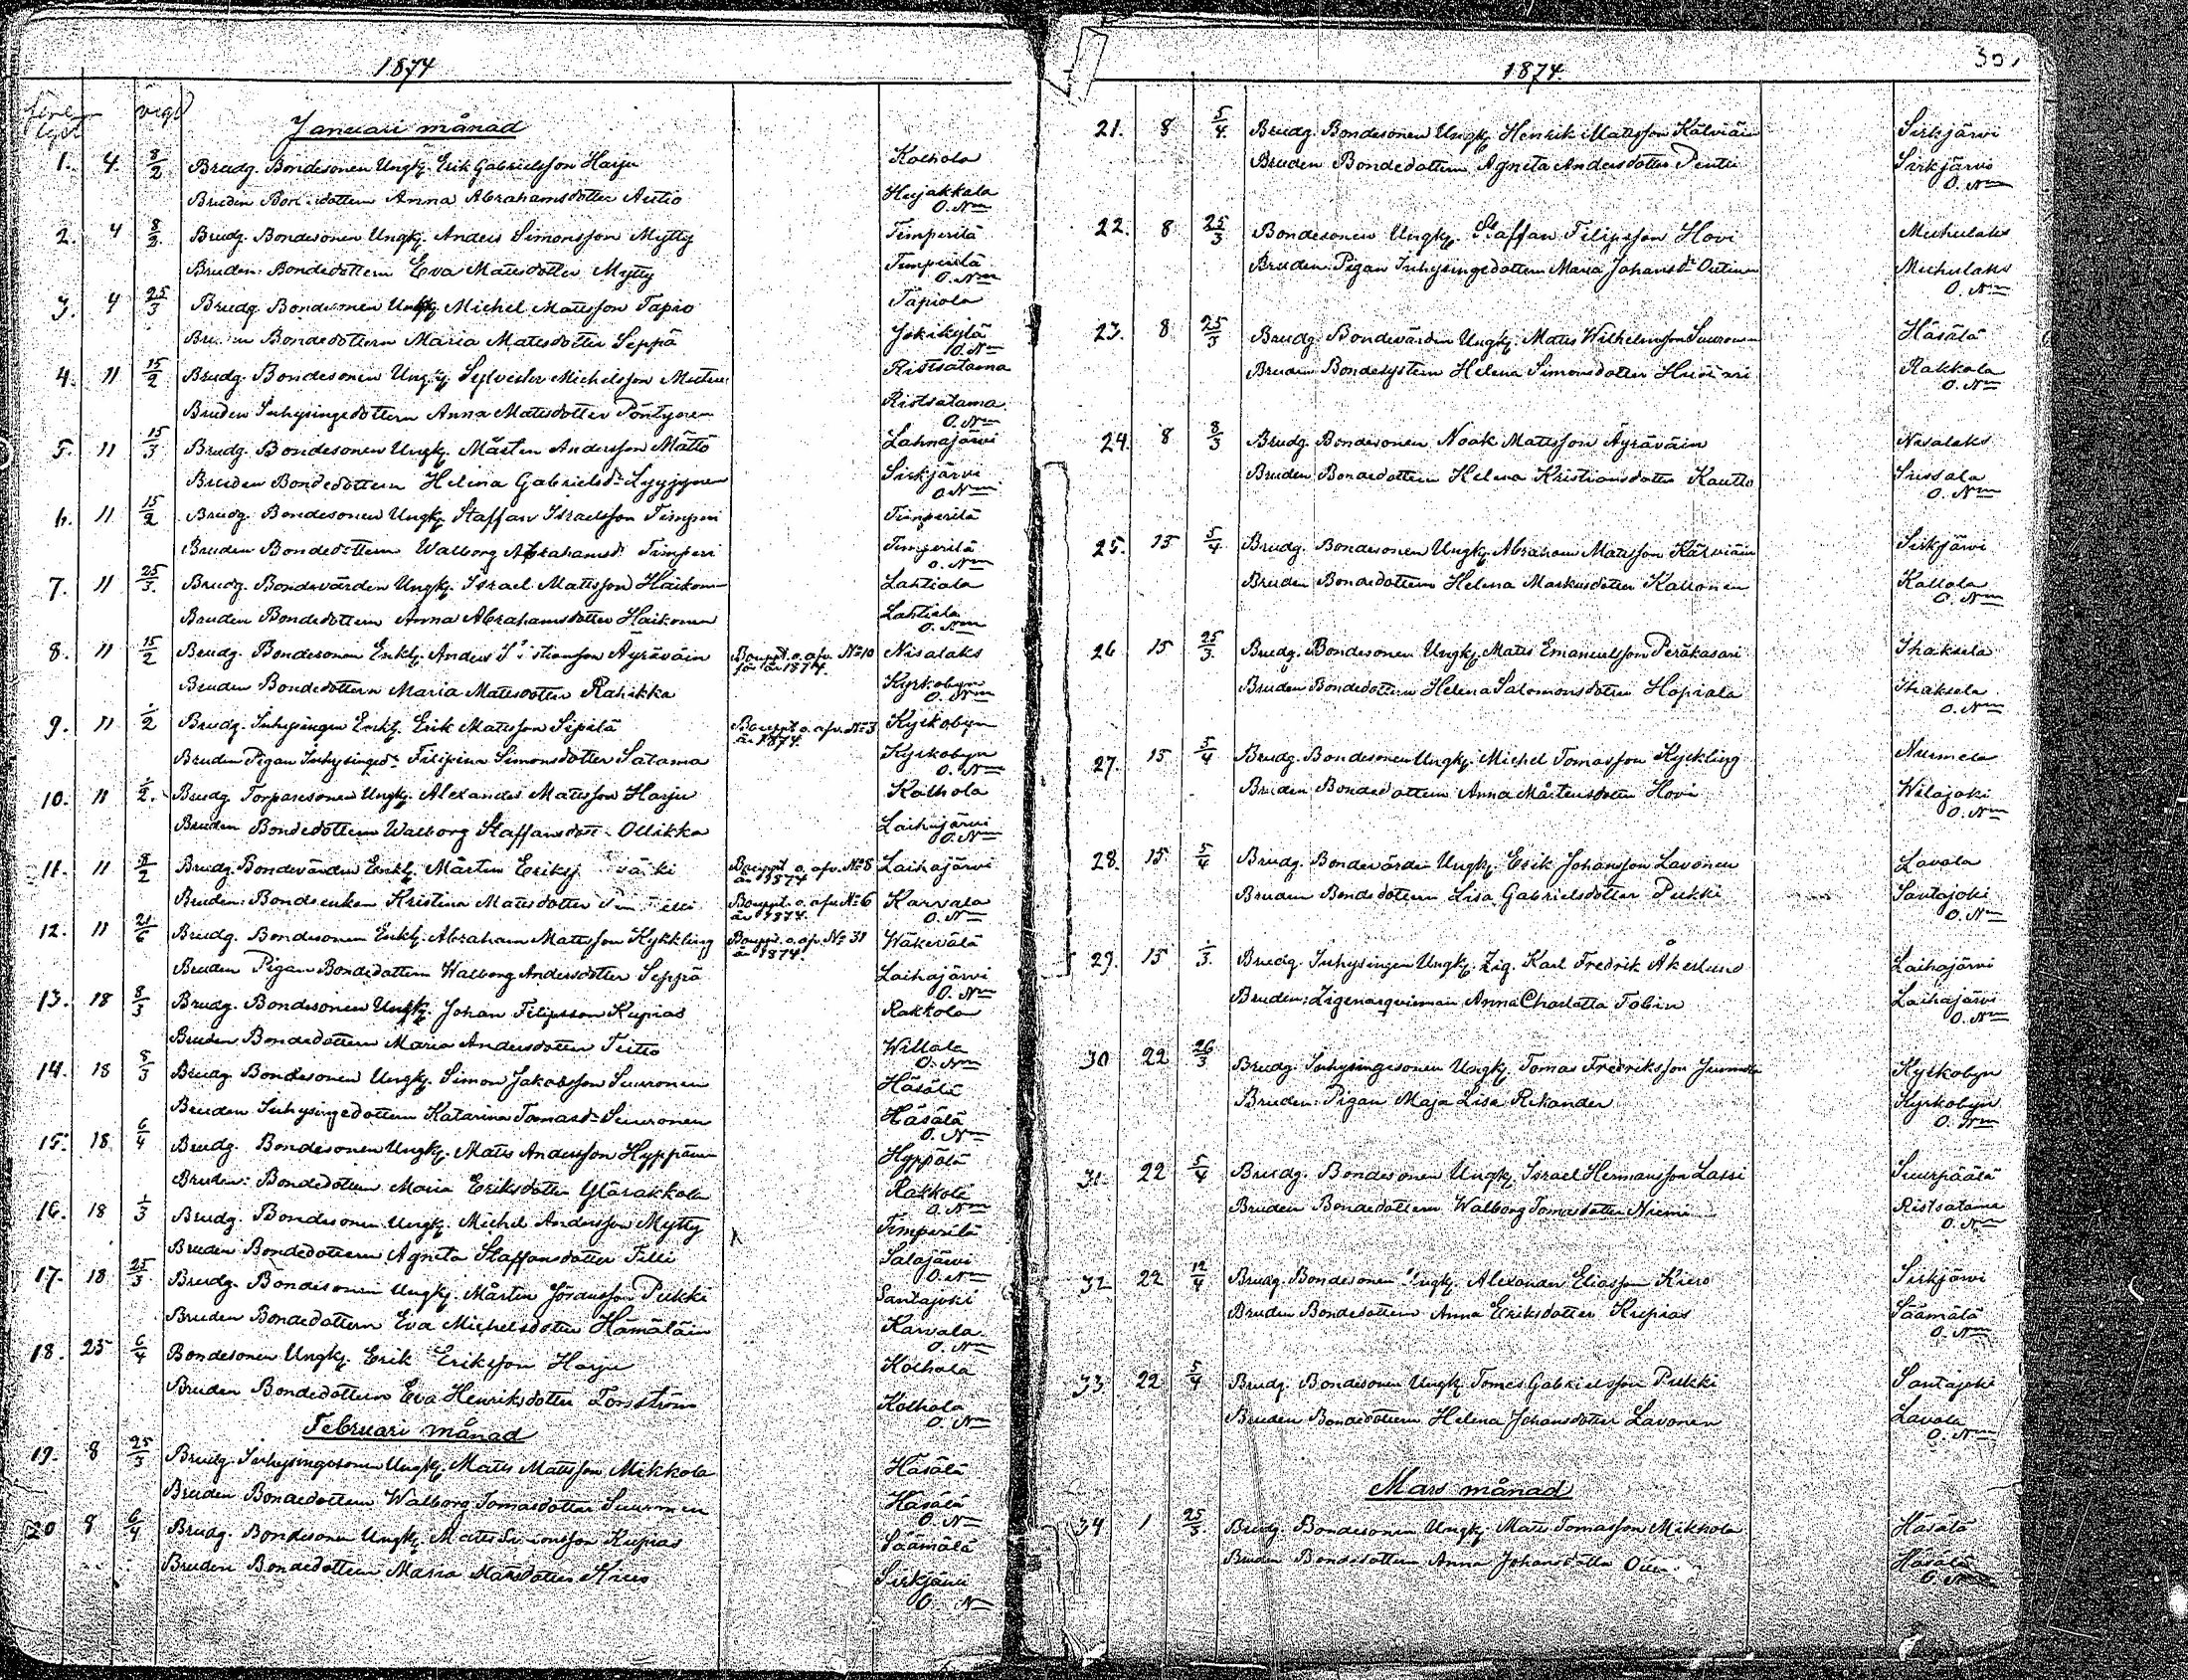 1874
vigd
Januari månad
1. 4. 8/2 Brudg. Bondesonen Ungk. Erik Gabrielsson Harju Kolhola
Bruden Bondedottern Anna Abrahamsdotter Autio Hejakkala
O. Nm
2. 4 8/2. Brudg. Bondesonen Ungk. Anders Simonsson Mytty Timperilä
Bruden: Bondedottern Eva Matsdotter Mytty Timperilä
O. Nm
3. 4 25/3 Brudg. Bondesonen Ungk. Michel Matsson Tapio Tapiola
Bruden Bondedottern Maria Matsdotter Seppä Jokikylä
O. Nm
4. 11 15/2 Brudg. Bondesonen Ungk. Sylvester Michelsson Ristsatama
Bruden Inhysingedottern Anna Matsdotter Pöntynen Ristsatama.
O. Nm
5. 11 15/3 Brudg. Bondesonen Ungk. Mårten Andersson Mättö Lahnajärvi
Bruden Bondedottern Helena Gabrielsdr Lyyjynen Sirkjärvi
O. Nm
6. 11 15/2 Brudg. Bondesonen Ungk. Staffan Israelsson Timperi Timperilä
Bruden Bondedottern Walborg Abrahamsdr Timperi Timperilä
O. Nm
7. 11 25/3. Brudg. Bondevärden Ungk. Israel Matsson Haikonen Lahtiala
Bruden Bondedottern Anna Abrahamsdotter Haikonen Lahtiala
O. Nm
8. 11 15/2 Brudg. Bondesonen Enkl. Anders Äyräväin Bouppt. o. afv. No 10 Nisalaks
för år 1874.
Bruden Bondedottern Maria Matsdotter Rahikka Kyrkobyn
O. Nm
9. 11 1/2 Brudg. Inhysingen Enkl. Erik Matsson Sipilä Bouppt. o. afv. No 3 Kyrkobyn
år 1874.
Bruden Pigan Inhysingedr Filipina Simonsdotter Satama Kyrkobyn
O. Nm
10. 11 1/2. Brudg. Torparesonen Ungk. Alexander Matsson Harju Kolhola
Bruden Bondedottern Walborg Staffansdott. Ollikka Laihajärvi
O. Nm
11. 11 8/2 Brudg. Bondevärden Enkl. Mårten Bouppt. o. afv. No 8 Laihajärvi
år 1874
Bruden: Bondeenkan Kristina Matsdotter Bouppt. o. afv. No 6 Karvala
år 1874. O. Nm
12. 11 21/6 Brudg. Bondesonen Enkl. Abraham Mattsson Kykkling Bouppt. o. afv. No 31 Wäkevälä
år 1874
Bruden Pigan Bondedottern Walborg Andersdotter Seppä Laihajärvi
O. Nm
13. 18 8/3 Brudg. Bondesonen Ungk. Johan Filipsson Kupias Rakkola
Bruden Bondedottern Maria Andersdotter Teitto Willala
O. Nm
14. 18 8/3 Brudg. Bondesonen Ungk. Simon Jakobsson Suuronen Häsälä
Bruden Inhysingedottern Katarina Tomasdr Suuronen Häsälä
O. Nm
15. 18 6/4 Brudg. Bondesonen Ungk. Mats Andersson Hyppänen Hyppölä
Bruden: Bondedottern Maria Eriksdotter Ylärakkola Rakkola
O. Nm
16. 18 1/3 Brudg. Bondesonen Ungk. Michel Andersson Mytty Timperilä
Bruden Bondedottern Agneta Staffansdotter Tilli Salajärvi
O. Nm
17. 18 25/3 Brudg. Bondesonen Ungk. Mårten Pukki Santajoki
Bruden Bondedottern Eva Michelsdotter Hämäläin Karvala
O. Nm
18. 25 6/4 Bondesonen Ungk. Erik Eriksson Harju Kolhola
Bruden Bondedottern Eva Henriksdotter Forsström Kolhola
O. Nm
Februari månad
19. 8 25/3 Brudg. Inhysingesonen Ungk. Mats Matsson Mikkola Häsälä
Bruden Bondedottern Walborg Tomasdotter Suuronen Häsälä
O. Nm
20 8 6/4 Brudg. Bondesonen Ungk. Mats Simonsson Kupias Säämälä
Bruden Bondedottern Maria Matsdotter Sirkjärvi
O. Nm
1874
21. 8 5/4. Brudg. Bondesonen Ungk. Henrik Matsson Kälviäin Sirkjärvi
Bruden Bondedottern Agneta Andersdotter Penttu Sirkjärvi
O. Nm
22. 8 25/3 Bondesonen Ungk. Staffan Filipsson Hovi Muhulaks
Bruden: Pigan Inhysingedottern Maria Johansdr Outinen Muhulaks
O. Nm
23. 8 25/3 Brudg. Bondevärden Ungk. Mats Wilhelmsson Suuronen Häsälä
Bruden Bondesystern Helena Simonsdotter Rakkola
O. Nm
24. 8 8/3 Brudg. Bondesonen Noak Mattsson Äyräväin Nisalaks
Bruden Bondedottern Helena Kristiansdotter Kautto Srissala
O. Nm
25. 15 5/4. Brudg. Bondesonen Ungk. Abraham Matsson Kälviäin Sirkjärvi
Bruden Bondedottern Helena Markusdotter Kallonen Kallola
O. Nm
26 15 25/3. Brudg. Bondesonen Ungk. Mats Emanuelsson Peräkasari Ihaksela
Bruden Bondedottern Helena Salomonsdotter Hapiala Ihaksela
O. Nm
27. 15 5/4 Brudg. Bondesonen Ungk. Michel Tomasson Kyckling Nurmela
Bruden Bondedottern Anna Mårtensdotter Hovi Wilajoki
O. Nm
28. 15 5/4 Brudg. Bondevärden Ungk. Erik Johansson Lavonen Lavola
Bruden Bondedottern Lisa Gabrielsdotter Pukki Santajoki
O. Nm
29. 15 1/3. Brudg. Inhysingen Ungk. Zig. Karl Fredrik Åkerlund Laihajärvi
Bruden: Zigenarqvinnan Anna Charlotta Tobin Laihajärvi
O. Nm
30 22 26/3 Brudg. Inhysingesonen Ungk. Tomas Fredriksson Kyrkobyn
Bruden: Pigan Maja Lisa Rekander Kyrkobyn
O. Nm
31. 22 5/4 Brudg. Bondesonen Ungk. Israel Hermansson Lassi Suurpäälä
Bruden Bondedottern Walborg Tomasdotter Niemi Ristsatama
O. Nm
32 22 12/4 Brudg. Bondesonen Ungk. Alexander Eliasson Sirkjärvi
Bruden Bondedottern Anna Eriksdotter Kupias Säämälä
O. Nm
33. 22 5/4 Brudg. Bondesonen Ungk. Tomas Gabrielsson Pukki Santajoki
Bruden Bondedottern Helena Johansdotter Lavonen Lavola
O. Nm
Mars månad
34 1 25/3. Brudg. Bondesonen Ungk. Mats Tomasson Mikkola Häsälä
Bruden Bondedottern Anna Johansdotter Häsälä
O. Nm